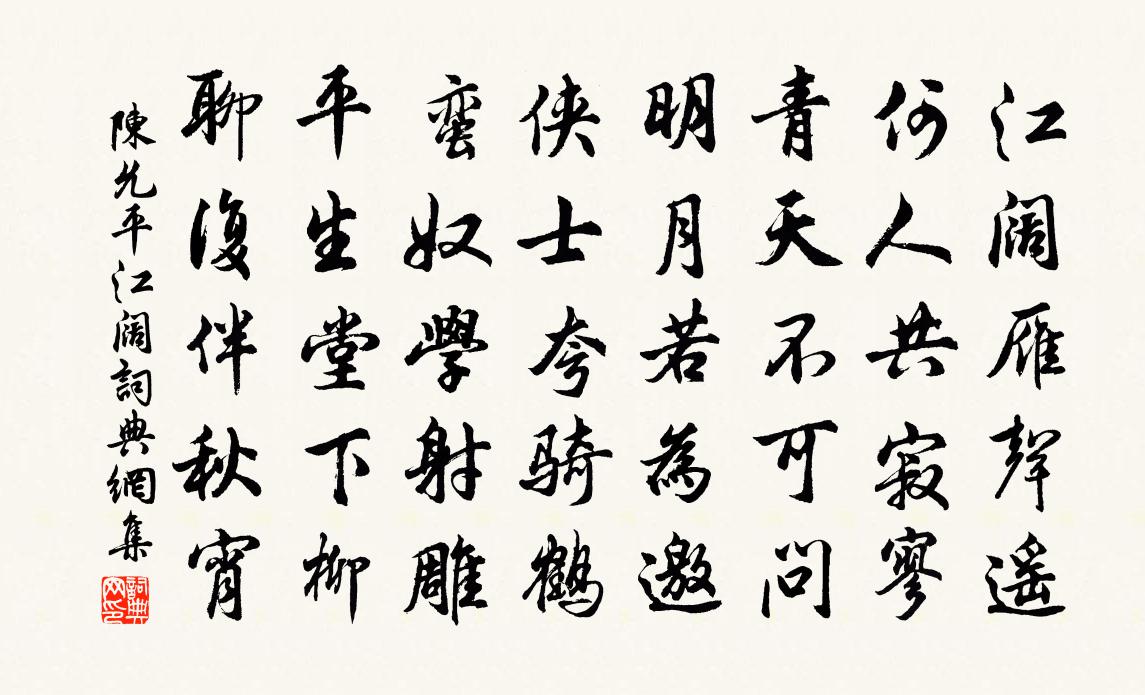 江阔雁聲遥
何人共寂寥
青天不可問
明月若為邀
俠士夸騎鶴
蛮奴學射雕
平生堂下柳
聊復伴秋宵
陳允平江阔詞典網集
詞典
网印